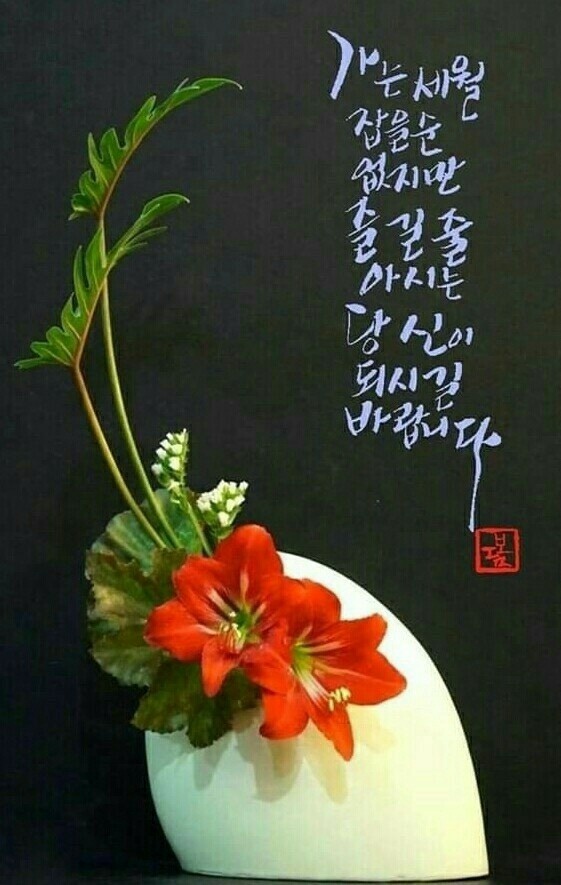 가는 세월
잡을 순
없지만
즐길 줄
아시는
당신이
되시길
바랍니다
봄